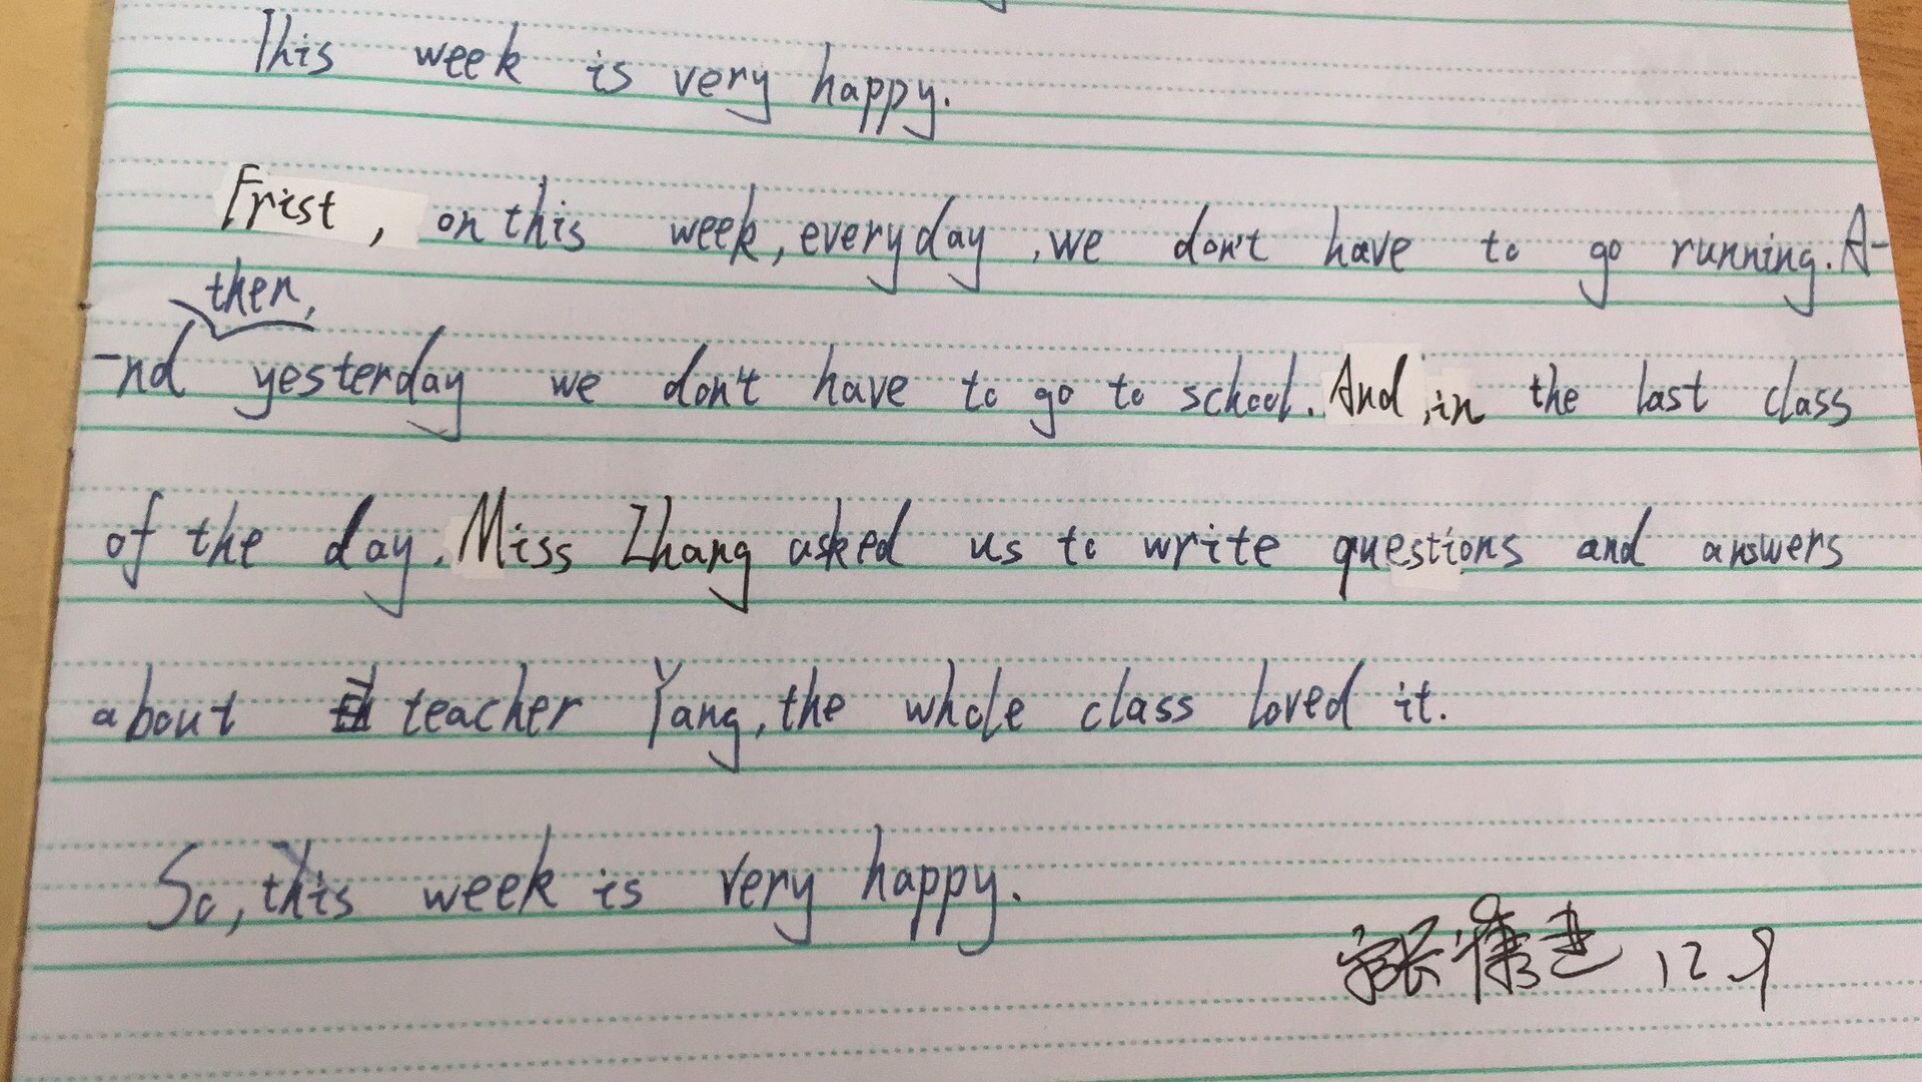 This week is very happy.
Frist, on this week, everyday, we don't have to go running. A-
then,
-nd yesterday we don't have to go to school. And, in the last class
of the day. Miss Zhang asked us to write questions and answers
about teacher Yang, the whole class loved it.
So, this week is very happy.
家长 12.9